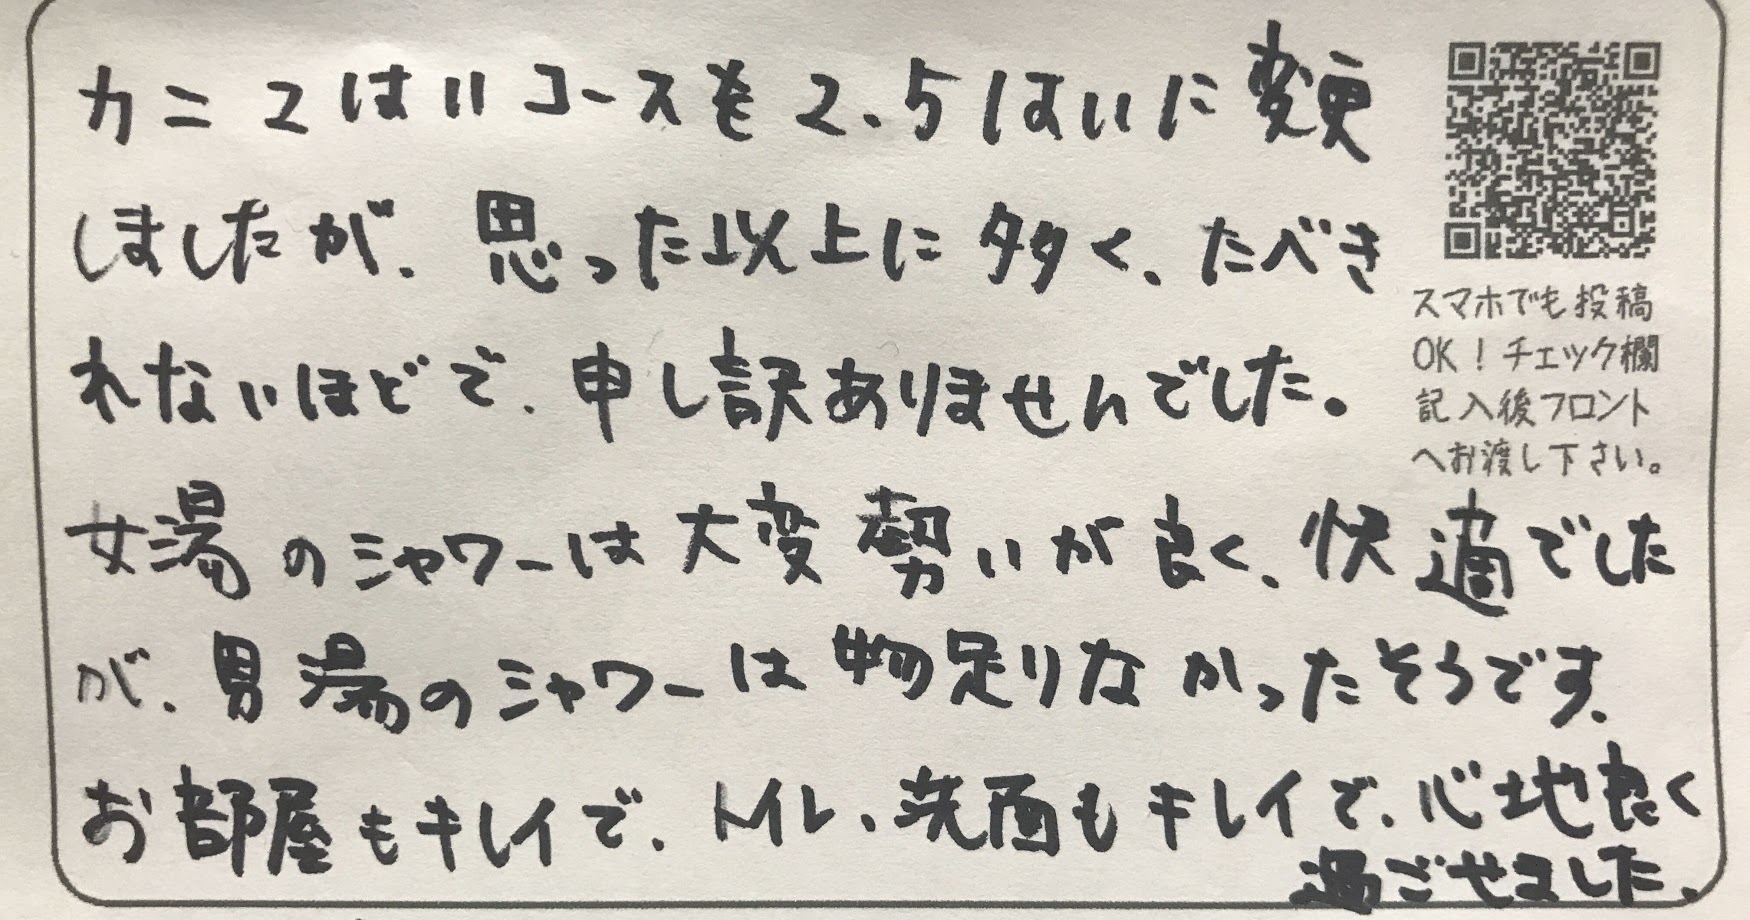 カニ2はいコースを2.5はいに変更
しましたが、思った以上に多く、たべき
れないほどで、申し訳ありませんでした。
女湯のシャワーは大変勢いが良く、快適でした
が、男湯のシャワーは物足りなかったそうです。
お部屋もキレイで、トイレ、洗面もキレイで、心地良く
過ごせました。
スマホでも投稿
OK！チェック欄
記入後フロント
へお渡し下さい。